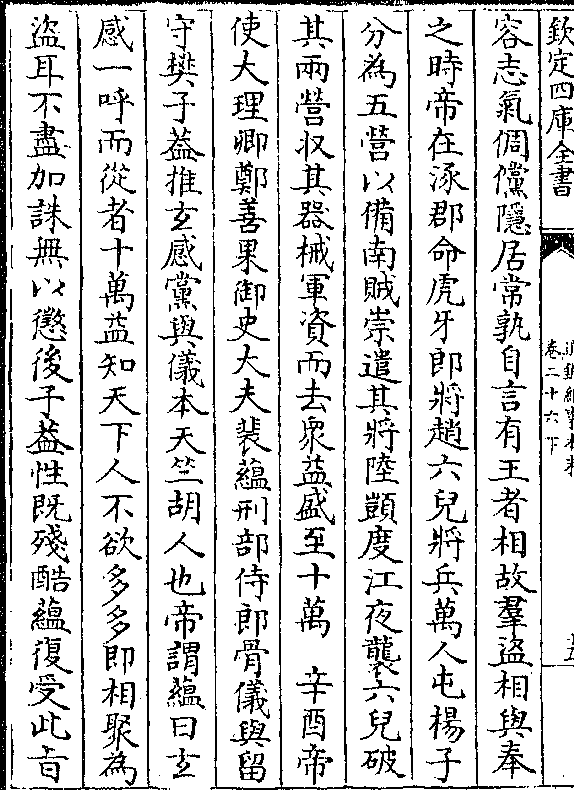 欽定四庫全書
卷二十六下
容志氣倜儻隱居常孰自言有王者相故羣盜相與奉
之時帝在涿郡命虎牙郎將趙六兒將兵萬人屯楊子
分為五營以備南賊崇遣其將陸顗度江夜襲六兒破
其兩營收其器械軍資而去衆益盛至十萬　辛酉帝
使大理卿鄭善果御史大夫裴蘊刑部侍郎骨儀與留
守樊子葢推𤣥感黨與儀本天竺胡人也帝謂蘊曰𤣥
感一呼而從者十萬益知天下人不欲多多即相聚為
盜耳不盡加誅無以懲後子葢性既殘酷蘊復受此旨